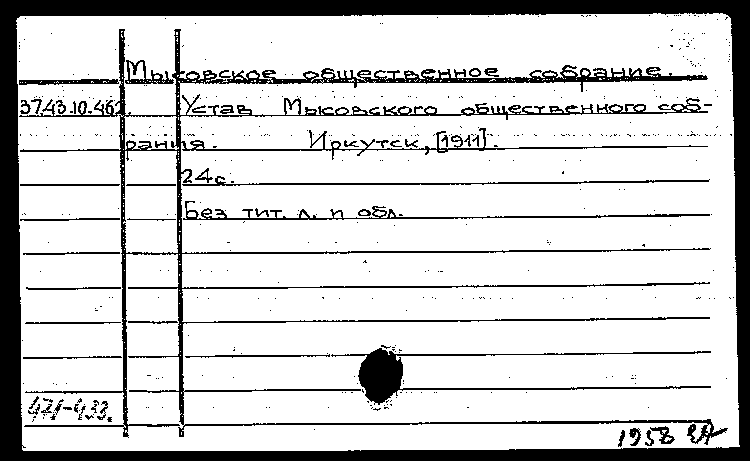 Мысовское общественное собрание.
37.43.10.462. Устав Мысовского общественного соб-
рания. Иркутск, [1911].
24с.
Без тит. л. и обл.
471-433.
1958